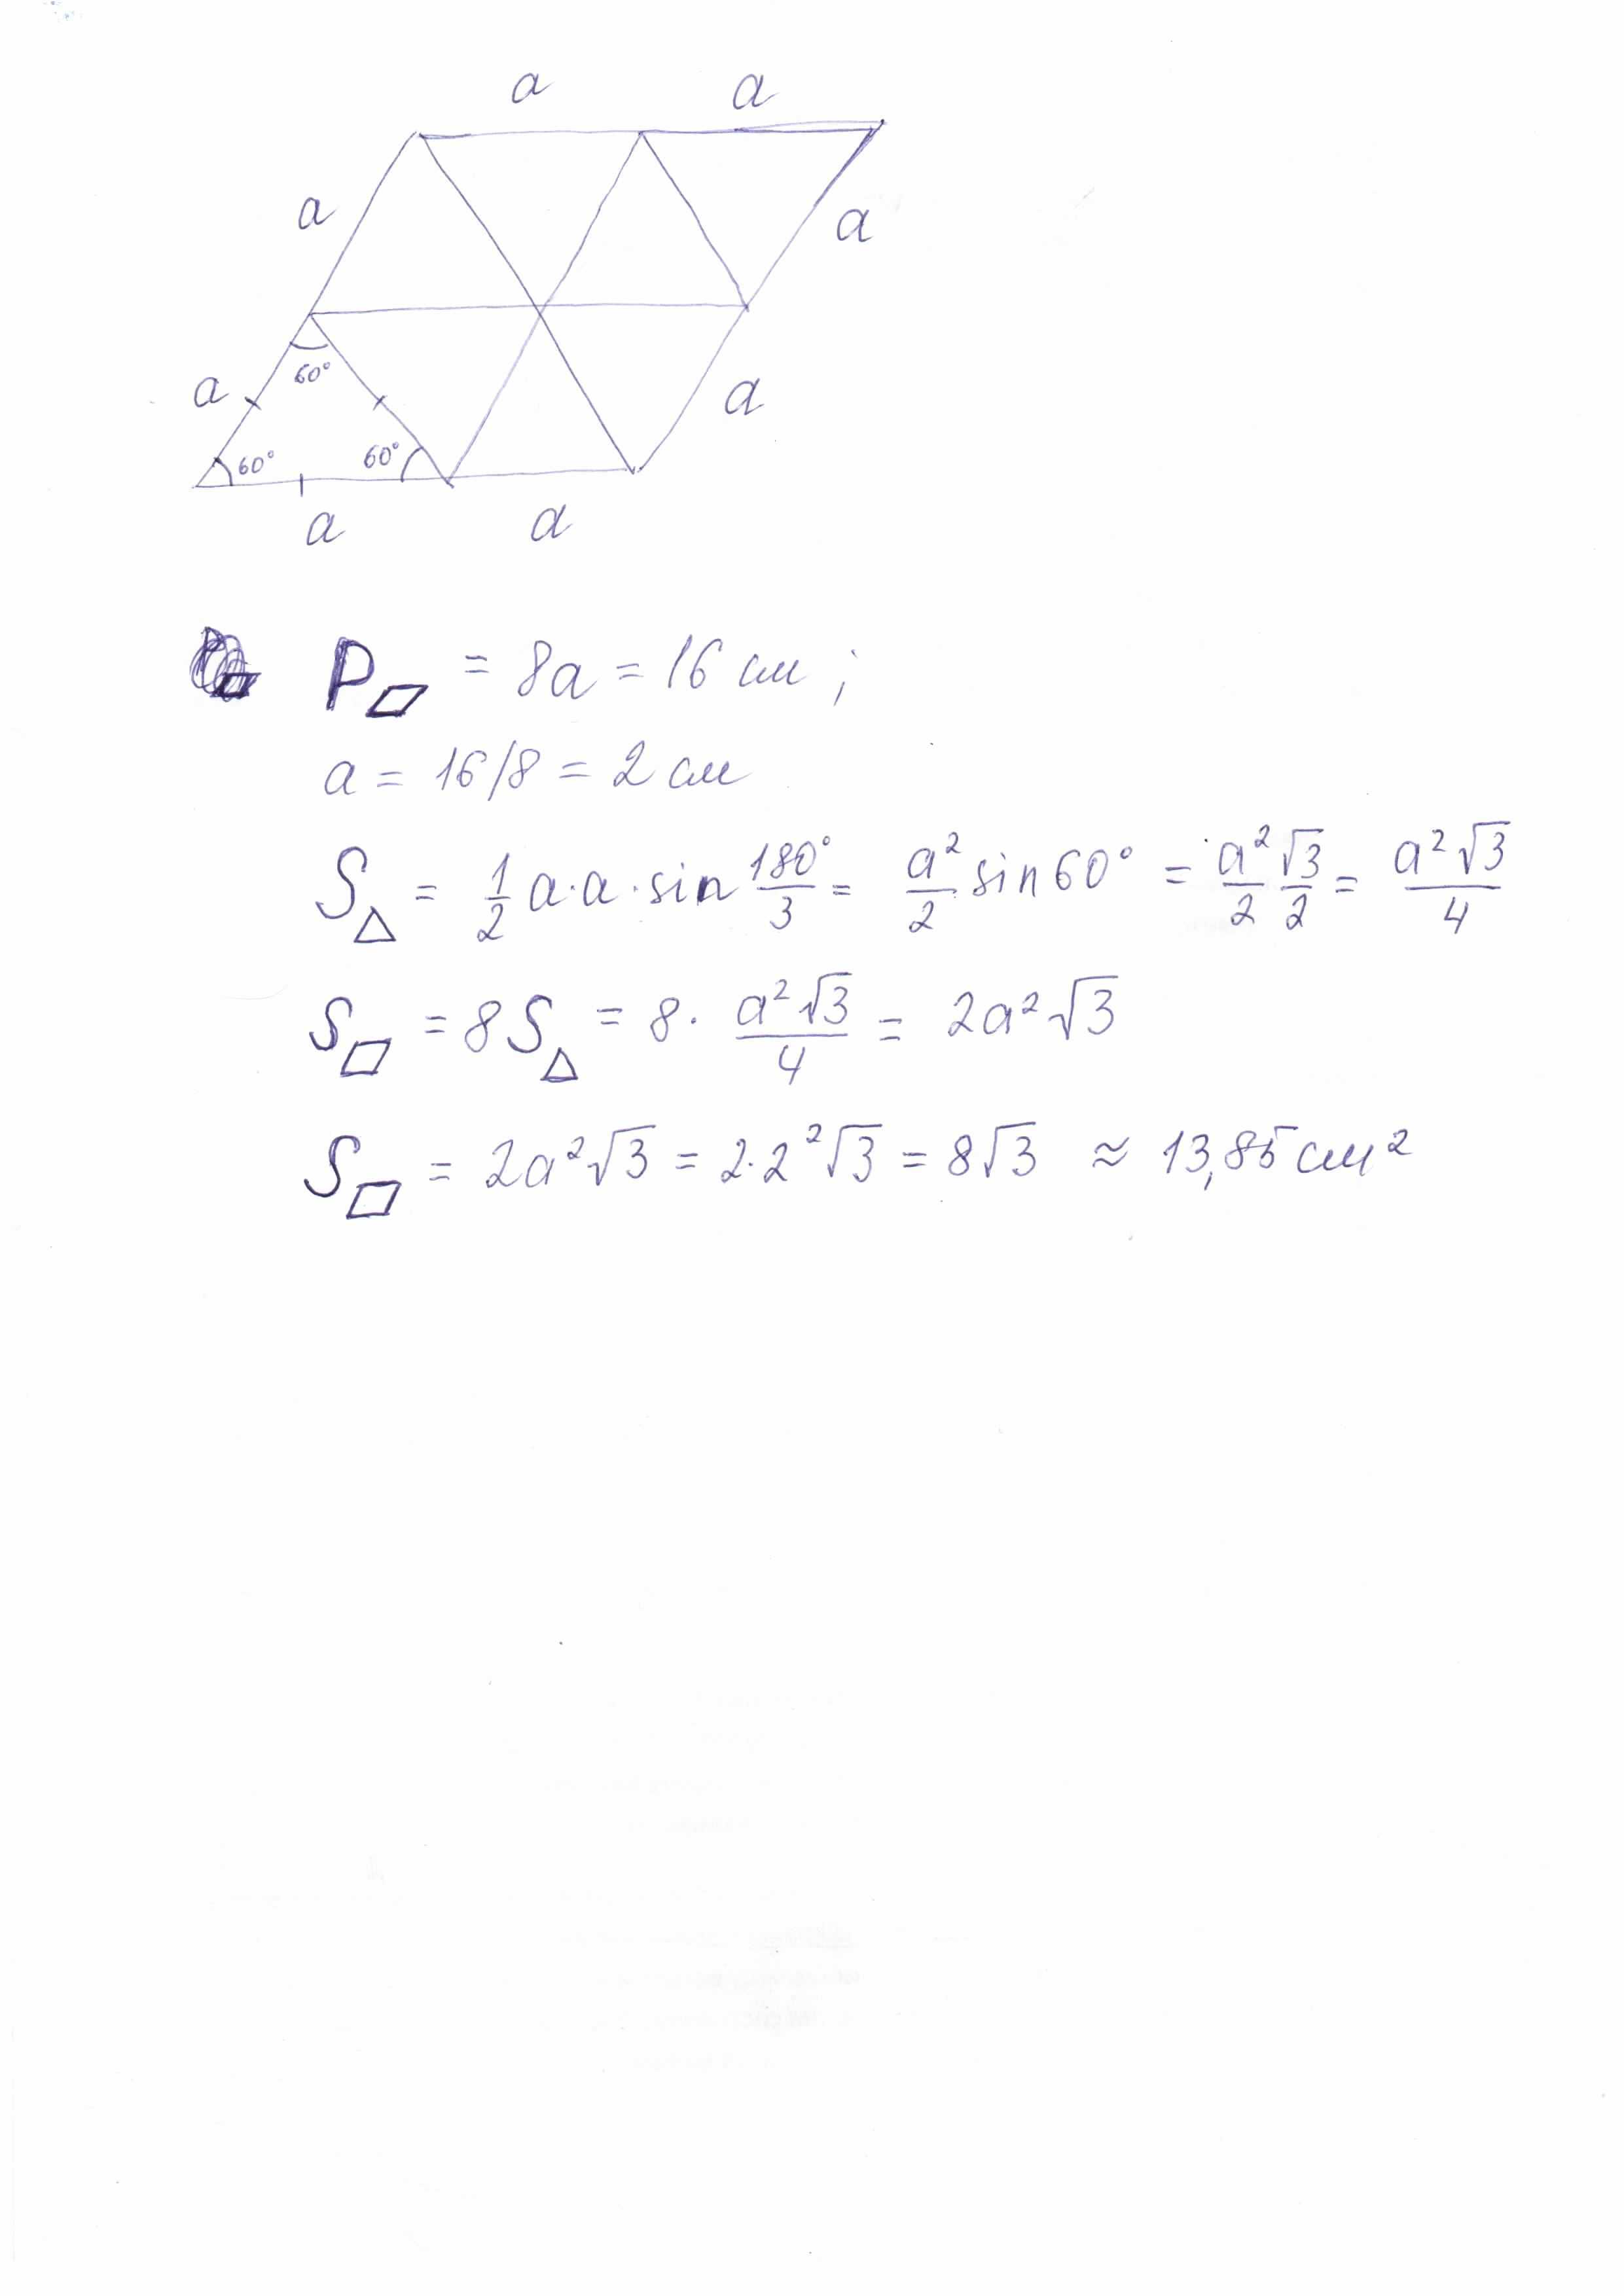 a a
a a
60°
a a
60° 60°
a a
P▱ = 8a = 16 см ;
a = 16/8 = 2 см
S△ = 1/2 a·a·sin 180°/3 = a²/2 sin 60° = a²/2 √3/2 = a²√3/4
S▱ = 8S△ = 8· a²√3/4 = 2a²√3
S▱ = 2a²√3 = 2·2²√3 = 8√3 ≈ 13,85 см²